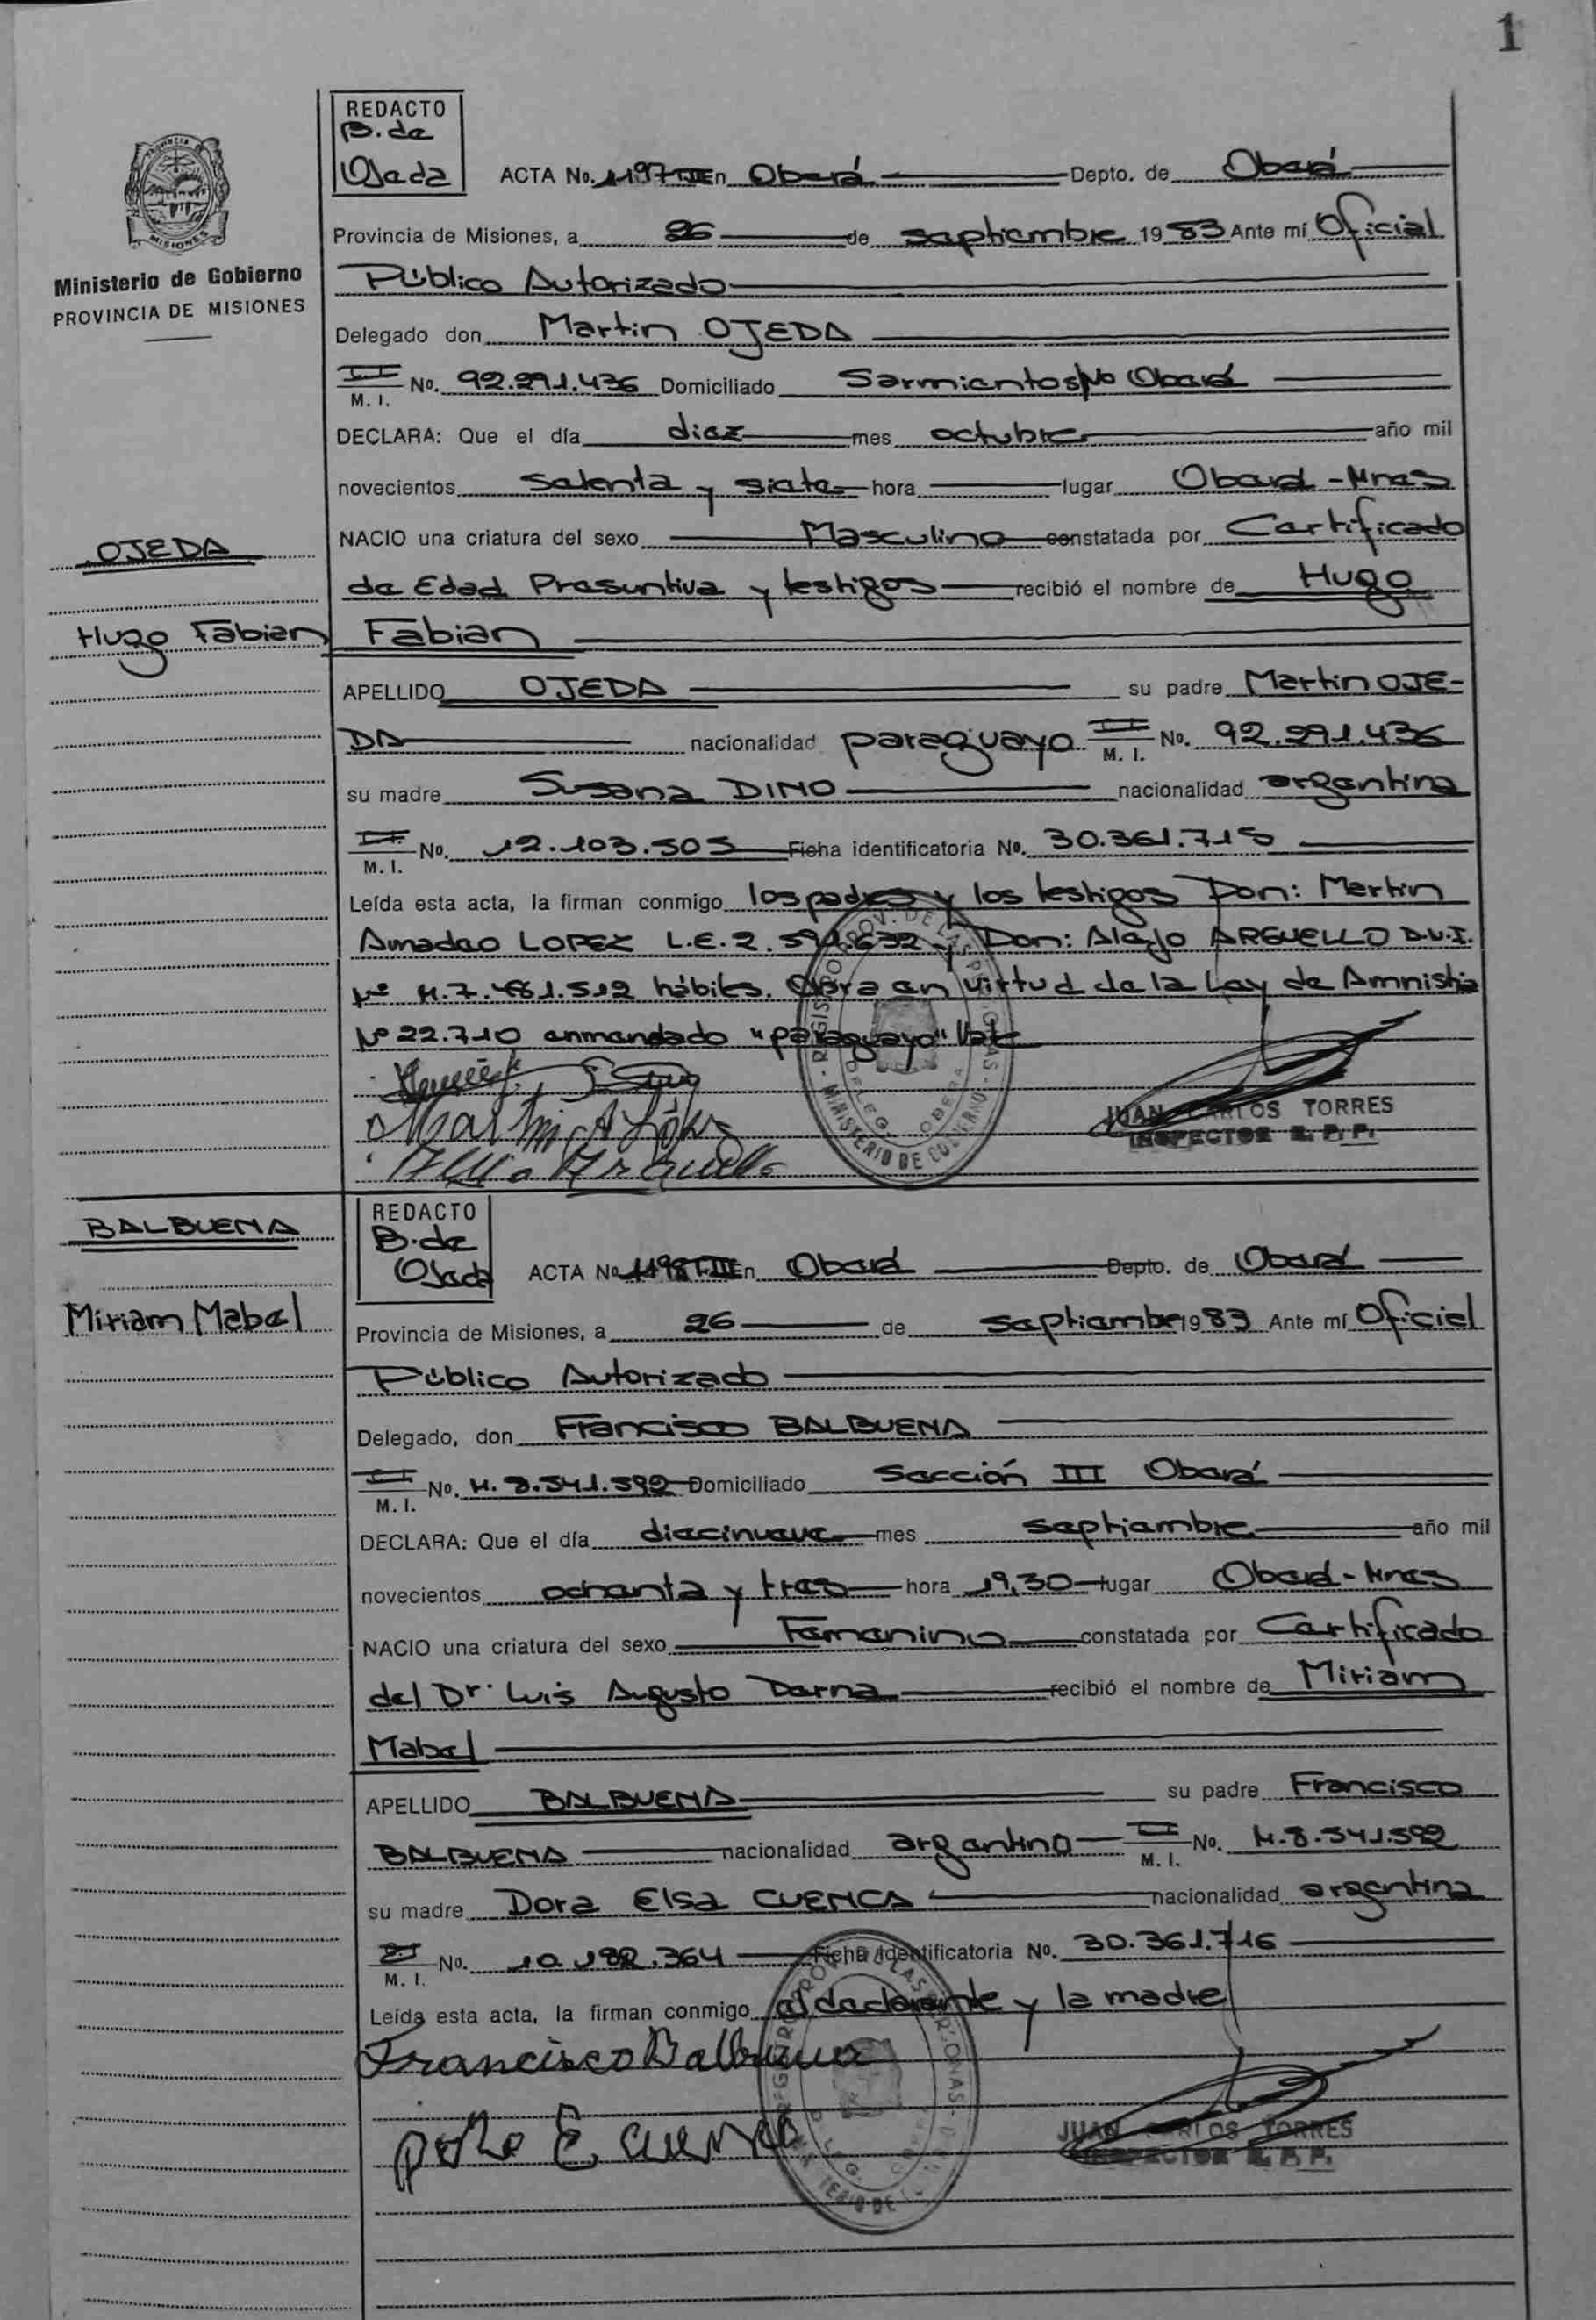 1
REDACTO
B. de
Ojeda
ACTA No. 1197 TIII En Oberá Depto. de Oberá
Provincia de Misiones, a 26 de septiembre 1983 Ante mí Oficial
Ministerio de Gobierno
PROVINCIA DE MISIONES
Público Autorizado
Delegado don Martin OJEDA
M. I. No. 92.291.436 Domiciliado Sarmiento s/No Oberá
DECLARA: Que el día diez mes octubre año mil
novecientos setenta y siete hora lugar Oberá - Mnes
OJEDA
NACIO una criatura del sexo Masculino constatada por Certificado
de Edad Presuntiva y testigos recibió el nombre de Hugo
Hugo Fabian
Fabian
APELLIDO OJEDA su padre Martin OJE-
DA nacionalidad paraguayo M. I. No. 92.291.436
su madre Susana DINO nacionalidad argentina
M. I. No. 12.103.505 Ficha identificatoria No. 30.361.715
Leída esta acta, la firman conmigo los padres y los testigos Don: Martin
Amadeo LOPEZ L.E. 2.591.632 y Don: Alejo ARGUELLO D.N.I.
Nº M.7.481.512 hábiles. Obra en virtud de la Ley de Amnistia
Nº 22.710 enmendado "paraguayo" Vale
Martin A López
Arguello
JUAN CARLOS TORRES
INSPECTOR R. P. P.
BALBUENA
REDACTO
B. de
Ojeda
ACTA No 1198 TIII En Oberá Depto. de Oberá
Miriam Mabel
Provincia de Misiones, a 26 de septiembre 1983 Ante mí Oficial
Público Autorizado
Delegado, don Francisco BALBUENA
M. I. No. M. 8.541.592 Domiciliado Sección III Oberá
DECLARA: Que el día diecinueve mes septiembre año mil
novecientos ochenta y tres hora 19,30 lugar Oberá - Mnes
NACIO una criatura del sexo Femenino constatada por Certificado
del Dr. Luis Augusto Darna recibió el nombre de Miriam
Mabel
APELLIDO BALBUENA su padre Francisco
BALBUENA nacionalidad argentino M. I. No. M.8.541.592
su madre Dora Elsa CUENCA nacionalidad argentina
M. I. No. 10.182.364 Ficha Identificatoria No. 30.361.716
Leída esta acta, la firman conmigo el declarante y la madre
Francisco Balbuena
JUAN CARLOS TORRES
INSPECTOR R. P. P.